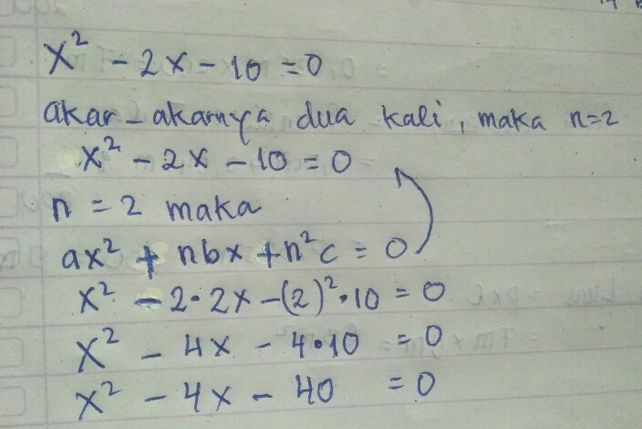 x² - 2x - 10 = 0
akar-akarnya dua kali, maka n=2
x² - 2x - 10 = 0
n = 2 maka
ax² + nbx + n²c = 0
x² - 2·2x - (2)²·10 = 0
x² - 4x - 4·10 = 0
x² - 4x - 40 = 0